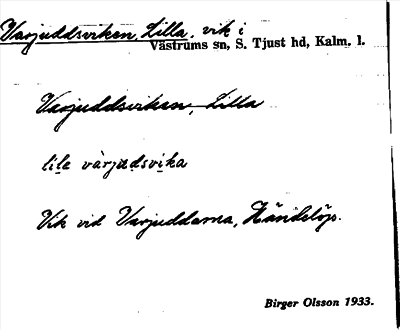 Varjuddsviken, Lilla, vik i
Västrums sn, S. Tjust hd, Kalm. l.
Varjuddsviken, Lilla
lilę vàrjudsvika
Vik vid Varjuddarna, Händelöp.
Birger Olsson 1933.